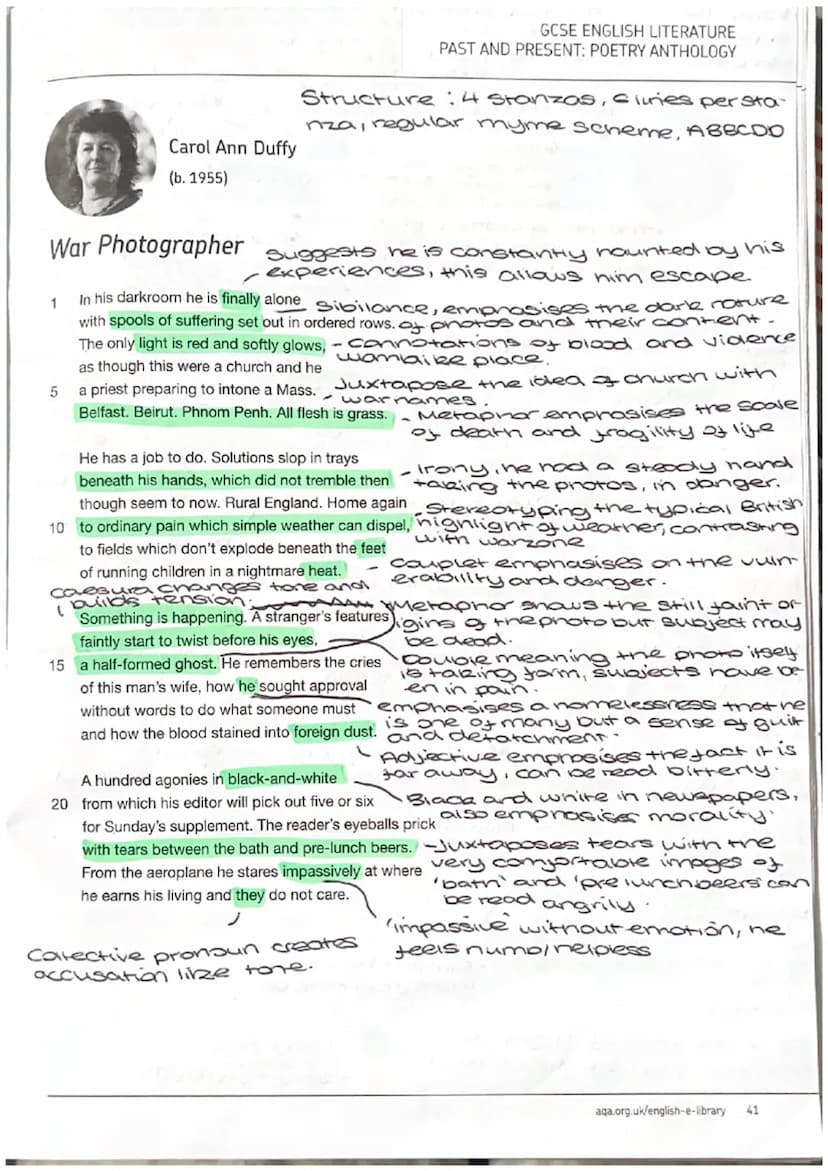 GCSE ENGLISH LITERATURE
PAST AND PRESENT: POETRY ANTHOLOGY
Structure : 4 stanzas, 6 lines per sta-
nza, regular rhyme scheme, ABBCDD
Carol Ann Duffy
(b. 1955)
War Photographer
suggests he is constantly haunted by his
experiences, this allows him escape.
1 In his darkroom he is finally alone
sibilance, emphasises the dark nature
with spools of suffering set out in ordered rows.
of photos and their content.
The only light is red and softly glows,
- connotations of blood and violence
as though this were a church and he
warlike place.
5 a priest preparing to intone a Mass.
Juxtapose the idea of church with
war names.
Belfast. Beirut. Phnom Penh. All flesh is grass.
- Metaphor emphasises the scale
of death and fragility of life
He has a job to do. Solutions slop in trays
beneath his hands, which did not tremble then
- Irony, he had a steady hand
taking the photos, in danger.
though seem to now. Rural England. Home again
- Stereotyping the typical British
10 to ordinary pain which simple weather can dispel,
highlight of weather, contrasting
with warzone
to fields which don't explode beneath the feet
of running children in a nightmare heat.
- Couplet emphasises on the vuln-
erability and danger.
caesura changes tone and
builds tension.
Something is happening. A stranger's features
Metaphor shows the still faint or-
igins of the photo but subject may
be dead.
faintly start to twist before his eyes,
15 a half-formed ghost. He remembers the cries
Double meaning the photo itself
is taking form, subjects have be-
en in pain.
of this man's wife, how he sought approval
without words to do what someone must
emphasises a namelessness that he
is one of many but a sense of guilt
and detatchment.
and how the blood stained into foreign dust.
Adjective emphasises the fact it is
far away, can be read bitterly.
A hundred agonies in black-and-white
20 from which his editor will pick out five or six
Black and white in newspapers,
also emphasises morality.
for Sunday's supplement. The reader's eyeballs prick
with tears between the bath and pre-lunch beers.
- Juxtaposes tears with the
very comfortable images of
'bath' and 'pre lunch beers' can
be read angrily.
From the aeroplane he stares impassively at where
he earns his living and they do not care.
'impassive' without emotion, he
feels numb/helpless
Collective pronoun creates
accusation like tone.
aqa.org.uk/english-e-library 41